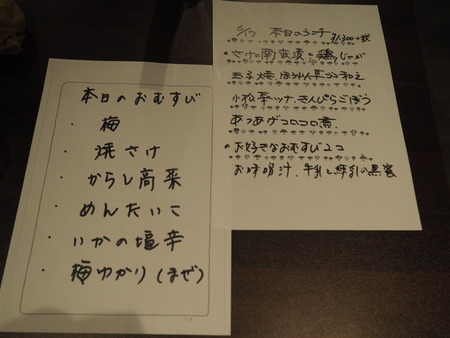 本日のおむすび
・梅
・焼さけ
・からし高菜
・めんたいこ
・いかの塩辛
・梅ゆかり(まぜ)
本日のランチ ¥1,300+税
さけの南蛮漬・鶏じゃが
玉子焼、ほうれん草 和え
小松菜ツナ、きんぴらごぼう
あつあげコロコロ煮
・お好きなおむすび2コ
お味噌汁、牛乳と練乳の黒蜜